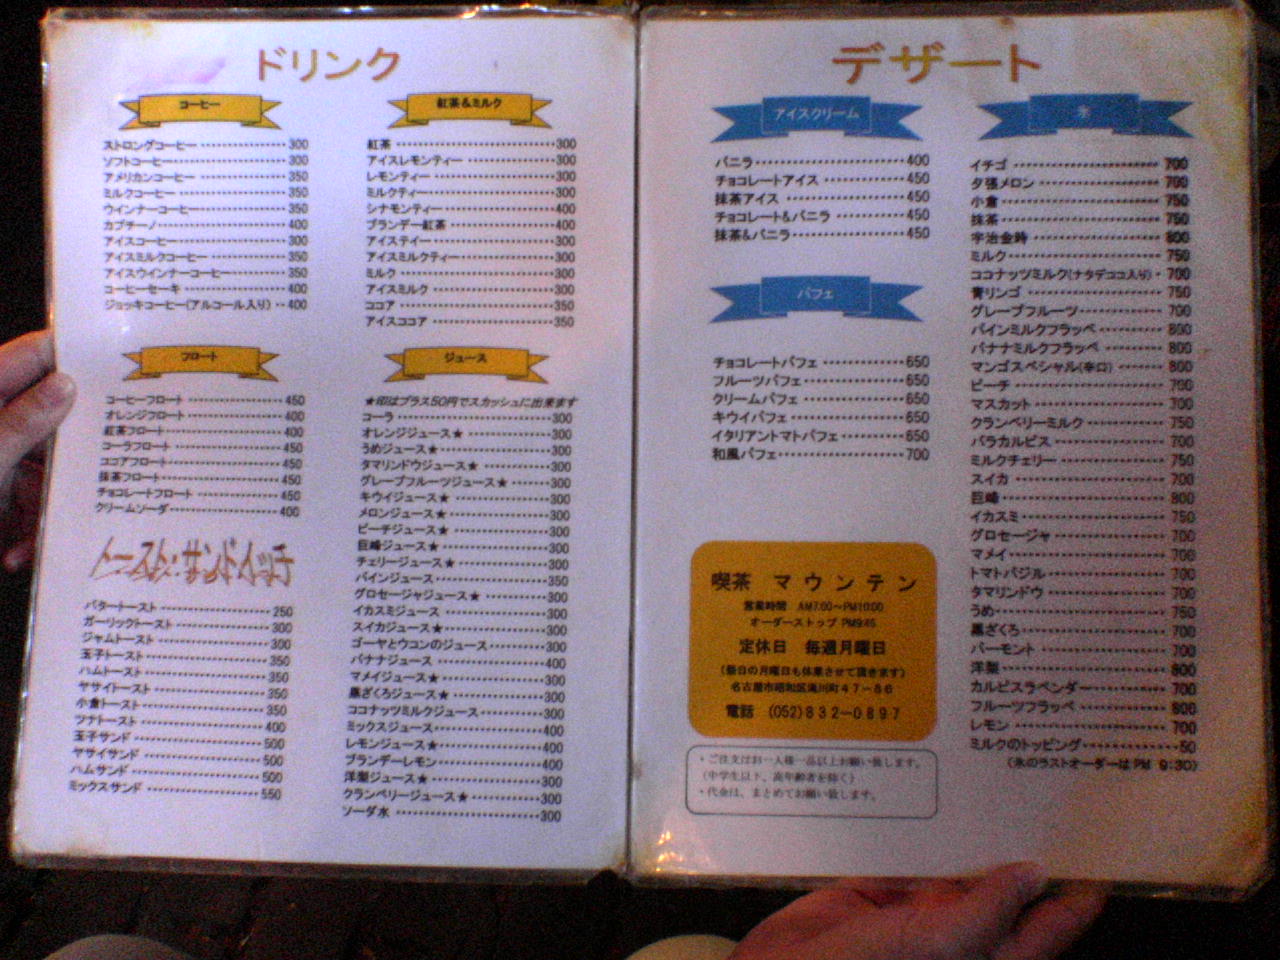 ドリンク
コーヒー
ストロングコーヒー 300
ソフトコーヒー 300
アメリカンコーヒー 350
ミルクコーヒー 350
ウインナーコーヒー 350
カプチーノ 400
アイスコーヒー 300
アイスミルクコーヒー 350
アイスウインナーコーヒー 350
コーヒーセーキ 400
ジョッキコーヒー(アルコール入り) 400
フロート
コーヒーフロート 450
オレンジフロート 400
紅茶フロート 400
コーラフロート 450
ココアフロート 450
抹茶フロート 450
チョコレートフロート 450
クリームソーダ 400
トースト・サンドイッチ
バタートースト 250
ガーリックトースト 300
ジャムトースト 300
玉子トースト 350
ハムトースト 350
ヤサイトースト 350
小倉トースト 350
ツナトースト 400
玉子サンド 500
ヤサイサンド 500
ハムサンド 500
ミックスサンド 550
紅茶&ミルク
紅茶 300
アイスレモンティー 300
レモンティー 300
ミルクティー 300
シナモンティー 400
ブランデー紅茶 400
アイステイー 300
アイスミルクティー 300
ミルク 300
アイスミルク 300
ココア 350
アイスココア 350
ジュース
★印はプラス50円でスカッシュに出来ます
コーラ 300
オレンジジュース★ 300
うめジュース★ 300
タマリンドウジュース★ 300
グレープフルーツジュース★ 300
キウイジュース★ 300
メロンジュース★ 300
ピーチジュース★ 300
巨峰ジュース★ 300
チェリージュース★ 300
パインジュース 350
グロセージャジュース★ 300
イカスミジュース 300
スイカジュース★ 300
ゴーヤとウコンのジュース 300
バナナジュース 400
マメイジュース★ 300
黒ざくろジュース★ 300
ココナッツミルクジュース 300
ミックスジュース 400
レモンジュース★ 400
ブランデーレモン 400
洋梨ジュース★ 300
クランベリージュース★ 300
ソーダ水 300
デザート
アイスクリーム
バニラ 400
チョコレートアイス 450
抹茶アイス 450
チョコレート&バニラ 450
抹茶&バニラ 450
パフェ
チョコレートパフェ 650
フルーツパフェ 650
クリームパフェ 650
キウイパフェ 650
イタリアントマトパフェ 650
和風パフェ 700
喫茶 マウンテン
営業時間 AM7:00〜PM10:00
オーダーストップ PM9:45
定休日 毎週月曜日
(祭日の月曜日も休業させて頂きます)
名古屋市昭和区滝川町47-86
電話 (052)832-0897
・ご注文はお一人様一品以上お願い致します。
(中学生以下、高年齢者を除く)
・代金は、まとめてお願い致します。
氷
イチゴ 700
夕張メロン 700
小倉 750
抹茶 750
宇治金時 800
ミルク 750
ココナッツミルク(ナタデココ入り) 700
青リンゴ 750
グレープフルーツ 700
パインミルクフラッペ 800
バナナミルクフラッペ 800
マンゴスペシャル(辛口) 800
ピーチ 700
マスカット 700
クランベリーミルク 750
パラカルピス 700
ミルクチェリー 750
スイカ 700
巨峰 800
イカスミ 750
グロセージャ 700
マメイ 700
トマトバジル 700
タマリンドウ 700
うめ 750
黒ざくろ 700
パーモント 700
洋梨 800
カルピスラベンダー 700
フルーツフラッペ 800
レモン 700
ミルクのトッピング 50
(氷のラストオーダーは PM 9:30)